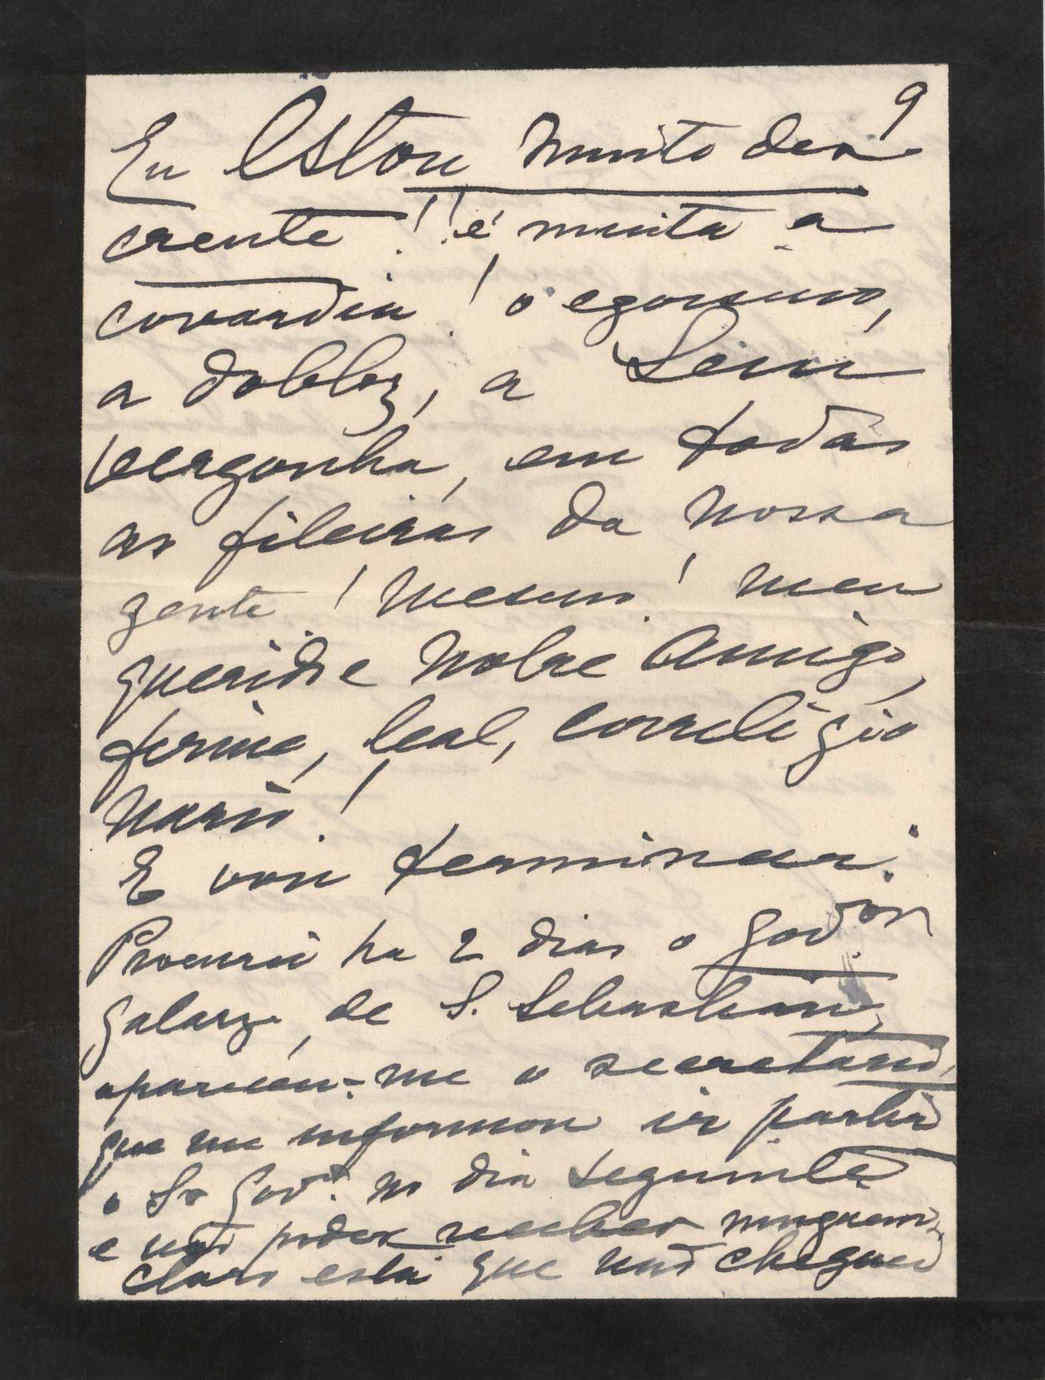 9
Eu Estou muito des
crente!! é muita a
covardia! o egoismo,
a dobblez, a Sem
Vergonha, em todas
as fileiras da nossa
gente! Mesmo! meu
querido e Nobre Amigo,
firme, leal, correligio
nario!
E vou terminar:
Procurei ha 2 dias o Govor
Galarza, de S. Sebastian,
apareceu-me o secretario,
que me informou ir partir
o Sr Govor no dia seguinte
e não poder receber ninguem,
claro está que não cheguei